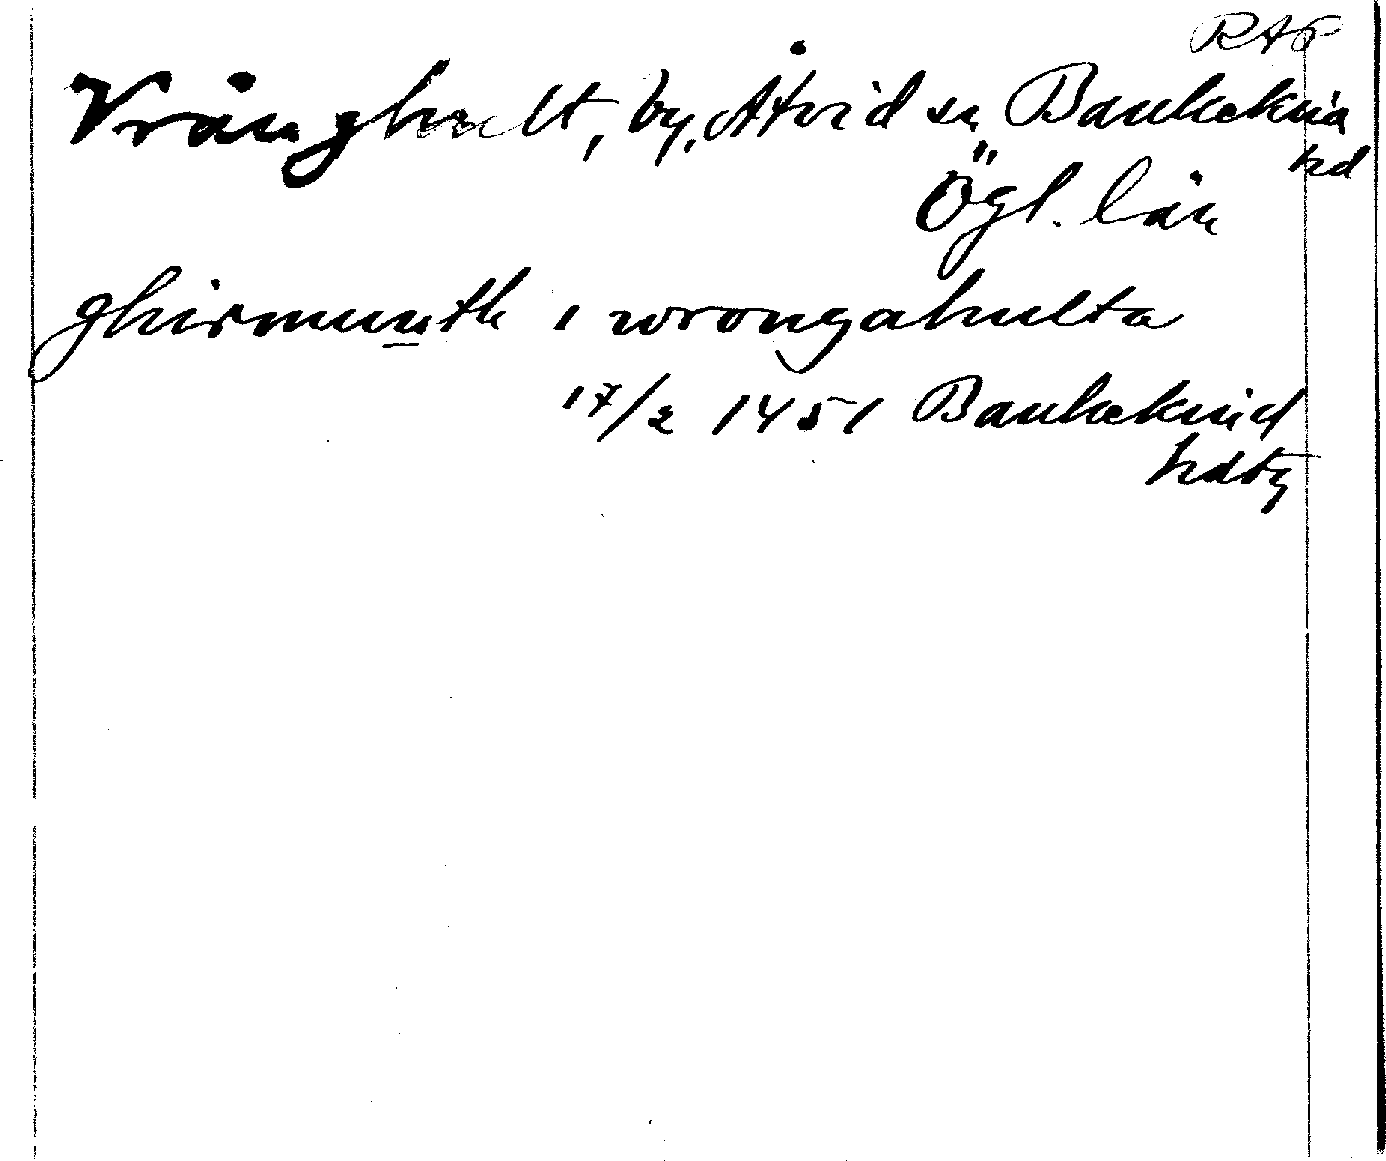 RAP
Vrånghult, by, Åtvid sn, Bankekind
hd
Ögl. län
ghirmunth i wrongahulta
17/2 1451 Bankekind
hdtg